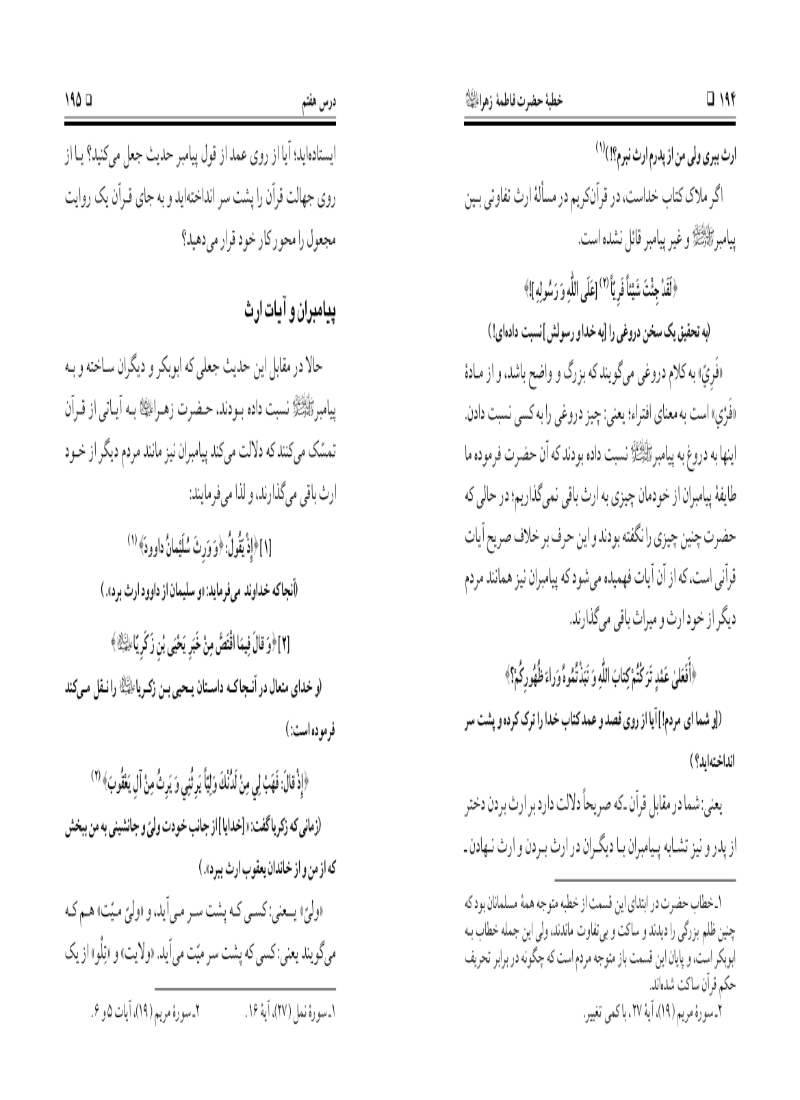 ۱۹۴ □ خطبهٔ حضرت فاطمهٔ زهرا﷥
ارث ببری ولی من از پدرم ارث نبرم؟!)(۱)
اگر ملاک کتاب خداست، در قرآن‌کریم در مسألهٔ ارث تفاوتی بین
پیامبرﷺ و غیر پیامبر قائل نشده است.
﴿لَقَدْ جِئْتَ شَيْئاً فَرِيّاً(۲) [عَلَى اللهِ وَ رَسُولِهِ]!﴾
(به تحقیق یک سخن دروغی را [به خدا و رسولش] نسبت داده‌ای!)
«فَرِيّ» به کلام دروغی می‌گویند که بزرگ و واضح باشد، و از مـادهٔ
«فَرْي» است به معنای افتراء؛ یعنی: چیز دروغی را به کسی نسبت دادن.
اینها به دروغ به پیامبرﷺ نسبت داده بودند که آن حضرت فرموده ما
طایفهٔ پیامبران از خودمان چیزی به ارث باقی نمی‌گذاریم؛ در حالی که
حضرت چنین چیزی را نگفته بودند و این حرف بر خلاف صریح آیات
قرآنی است، که از آن آیات فهمیده می‌شود که پیامبران نیز همانند مردم
دیگر از خود ارث و میراث باقی می‌گذارند.
﴿أَفَعَلىٰ عَمْدٍ تَرَكْتُمْ كِتابَ اللهِ وَ نَبَذْتُمُوهُ وَراءَ ظُهُورِكُمْ؟﴾
([و شما ای مردم!] آیا از روی قصد و عمد کتاب خدا را ترک کرده و پشت سر
انداخته‌اید؟)
یعنی: شما در مقابل قرآن ـ‌که صریحاً دلالت دارد بر ارث بردن دختر
از پدر و نیز تشابه پـیامبران بـا دیگـران در ارث بـردن و ارث نـهادن ـ
۱ـ خطاب حضرت در ابتدای این قسمت از خطبه متوجه همهٔ مسلمانان بود که
چنین ظلم بزرگی را دیدند و ساکت و بی‌تفاوت ماندند، ولی این جمله خطاب بـه
ابوبکر است، و پایان این قسمت باز متوجه مردم است که چگونه در برابر تحریف
حکم قرآن ساکت شده‌اند.
۲ـ سورهٔ مریم (۱۹)، آیهٔ ۲۷، با کمی تغییر.
درس هفتم □ ۱۹۵
ایستاده‌اید؛ آیا از روی عمد از قول پیامبر حدیث جعل می‌کنید؟ یـا از
روی جهالت قرآن را پشت سر انداخته‌اید و به جای قـرآن یک روایت
مجعول را محور کار خود قرار می‌دهید؟
پیامبران و آیات ارث
حالا در مقابل این حدیث جعلی که ابوبکر و دیگران سـاخته و بـه
پیامبرﷺ نسبت داده بـودند، حـضرت زهـرا﷥ بـه آیـاتی از قـرآن
تمسّک می‌کنند که دلالت می‌کند پیامبران نیز مانند مردم دیگر از خـود
ارث باقی می‌گذارند، و لذا می‌فرمایند:
[۱] ﴿إِذْ يَقُولُ: ﴿وَ وَرِثَ سُلَيْمانُ داوودَ﴾ (۱)
(آنجا که خداوند می‌فرماید: «و سلیمان از داوود ارث برد».)
[۲] ﴿وَ قالَ فِيمَا اقْتَصَّ مِنْ خَبَرِ يَحْيَى بْنِ زَكَرِيّا﷤﴾
(و خدای متعال در آنـجاکـه داسـتان یـحیی بـن زکـریا﷤ را نـقل مـی‌کند
فرموده است:)
﴿إِذْ قالَ: فَهَبْ لِي مِنْ لَدُنْكَ وَلِيّاً يَرِثُنِي وَ يَرِثُ مِنْ آلِ يَعْقُوبَ﴾ (۲)
(زمانی که زکریا گفت: «[خدایا] از جانب خودت ولیّ و جانشینی به من ببخش
که از من و از خاندان یعقوب ارث ببرد».)
«ولیّ» یـعنی: کسـی کـه پشت سـر مـی‌آید، و «ولیّ مـیّت» هـم کـه
می‌گویند یعنی: کسی که پشت سر میّت می‌آید. «ولایت» و «تِلْو» از یک
۱ـ سورهٔ نمل (۲۷)، آیهٔ ۱۶. ۲ـ سورهٔ مریم (۱۹)، آیات ۵ و ۶.